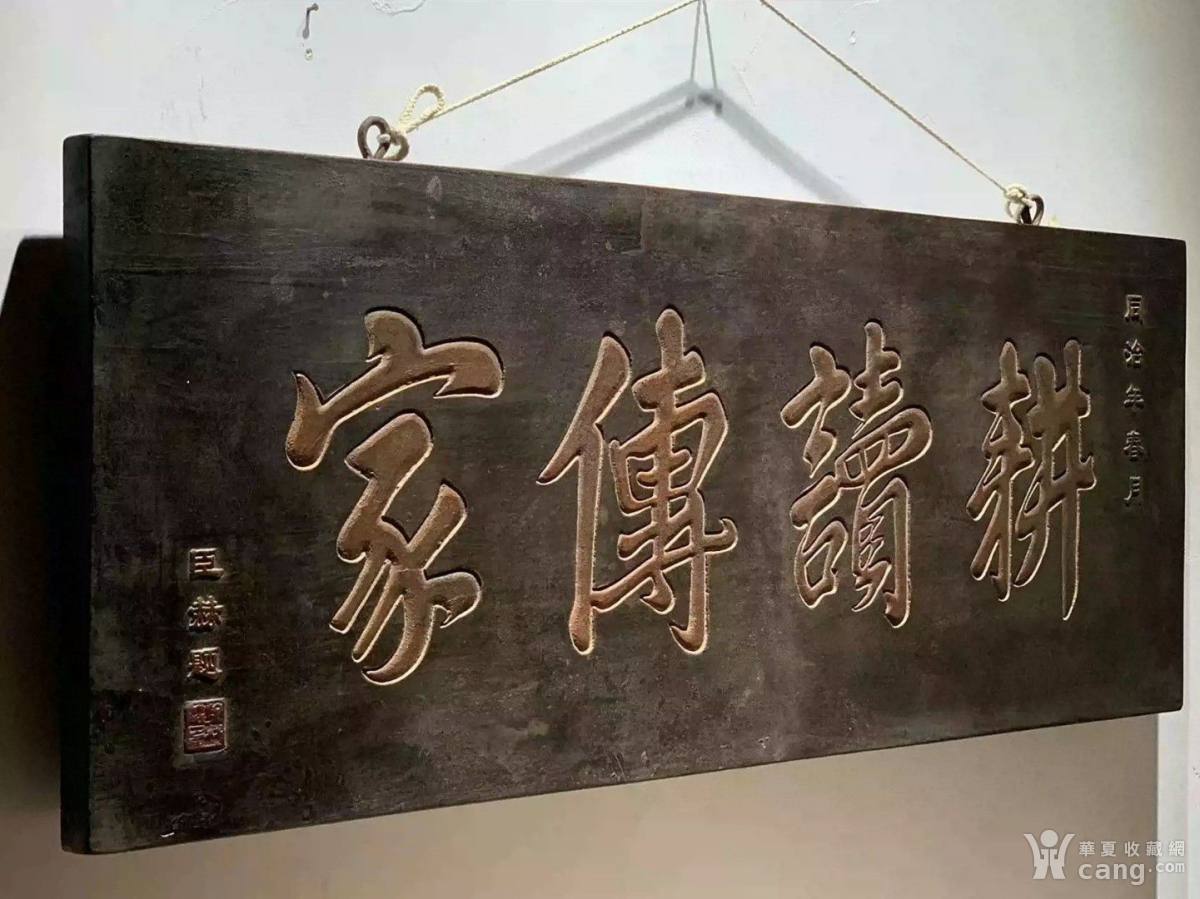 耕讀傳家
同治年春月
臣赫题
華夏收藏網
cang.com